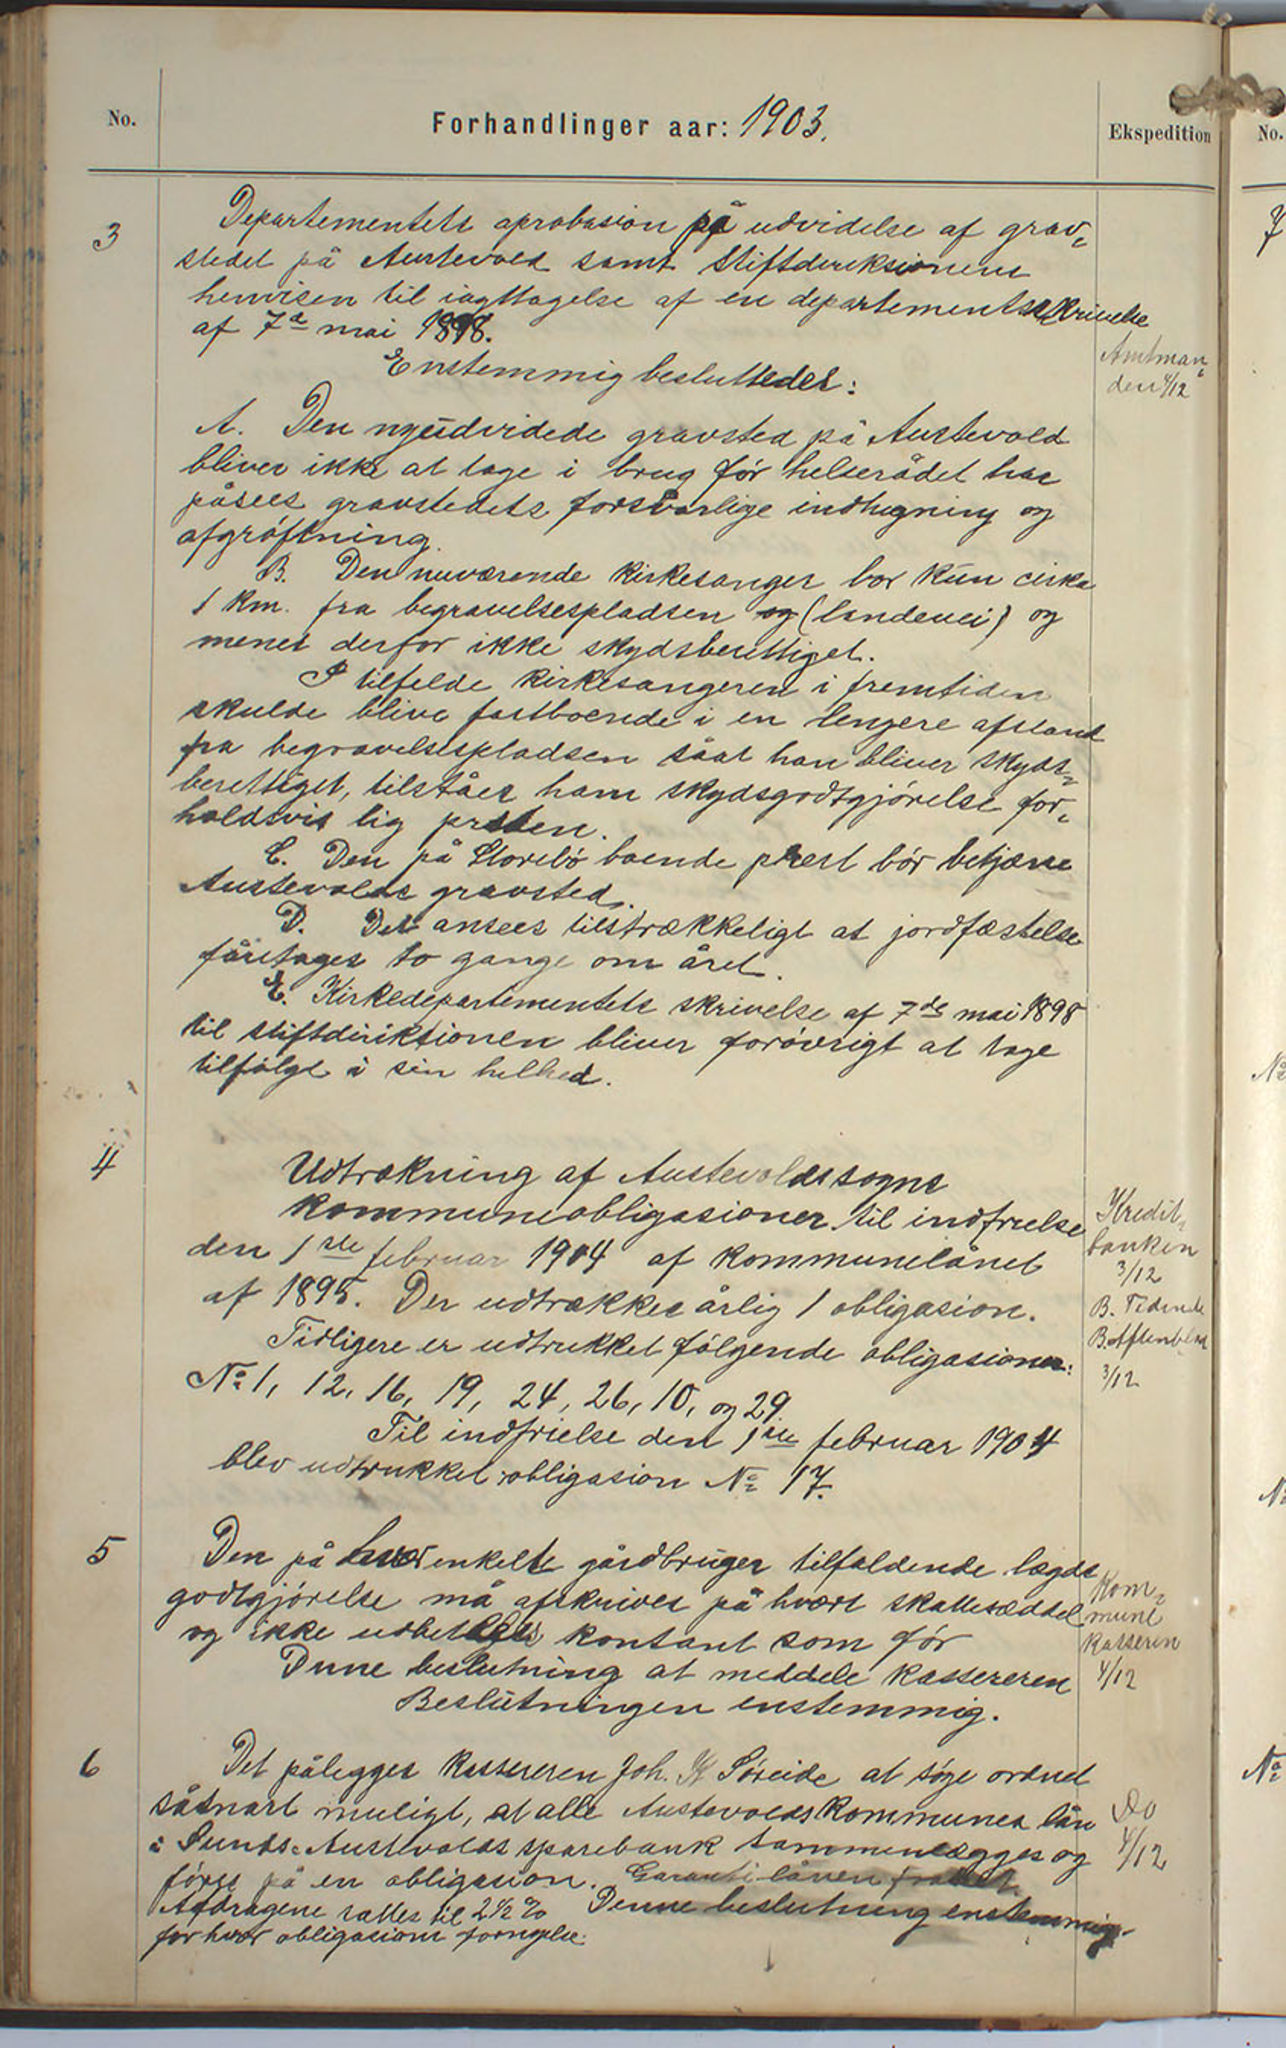 No.
Forhandlinger aar: 1903.
Ekspedition
No.
3
Departementets aprobasion på udvidelse af grav-
stedet på Austevold samt stiftdireksionens
henvisen til iagttagelse af en departementsskrivelse
af 7de mai 1898.
Enstemmig besluttedes:
Amtman-
den 4/12
A. Den nyudvidede gravsted på Austevold
bliver ikke at tage i brug før helserådet har
påsees gravstedets forsvarlige indhegning og
afgrøftning.
B. Den nuværende kirkesanger bor kun cirka
1 km. fra begravelsespladsen og (landevei) og
menes derfor ikke skydsberettiget.
I tilfelde kirkesangeren i fremtiden
skulde blive fastboende i en lengere afstand
fra begravelsespladsen såat han bliver skyds-
berettiget, tilståes ham skydsgodtgjørelse for-
holdsvis lig presten.
C. Den på Storebø boende prest bør betjæne
Austevolds gravsted.
D. Det ansees tilstrækkeligt at jordfæstelse
foretages to gange om året.
E. Kirkedepartementets skrivelse af 7de mai 1898
til stiftdireksionen bliver forøvrigt at tage
tilfølge i sin helhed.
4
Udtrækning af Austevoldssogns
kommuneobligasioner til indfrielse
den 1ste februar 1904 af kommunelånet
af 1895. Der udtrækkes årlig 1 obligasion.
Tidligere er udtrukket følgende obligasioner:
No 1, 12, 16, 19, 24, 26, 10, og 29
Til indfrielse den 1ste februar 1904
blev udtrukket obligasion No 17.
Kredit-
banken
3/12
B. Tidende
B. Aftenblad
3/12
5
Den på hver enkelte gårdbruger tilfaldende lægds
godtgjørelse må afskrives på hvers skatteseddel
og ikke udbetales kontant som før
Dene beslutning at meddele kassereren
Beslutningen enstemmig.
Kom-
mune
kasseren
4/12
6
Det pålegges kassereren Joh. K Søreide at søge ordnet
såsnart muligt, at alle Austevolds kommunes lån
i Sunds-Austevolds sparebank sammenlægges og
føres på en obligasion. Garanti lånen
Afdragene sattes til 2 1/2 % Denne beslutning enstemmig.
for hver obligasions fornyelse.
Do
4/12
7
No
No
No